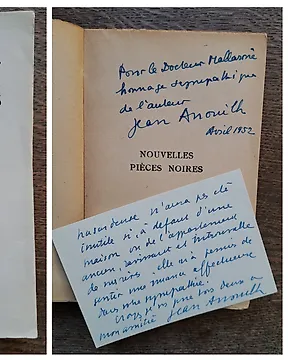 Pour le Docteur Mallarmé
hommage sympathique
de l'auteur
Jean Anouilh
Avril 1952
NOUVELLES
PIÈCES NOIRES
n'aura pas été
inutile si, à défaut d'une
maison ou de l'appartement
ancien, ravissant et introuvable
de m'avoir permis de
sentir une main affectueuse
dans votre sympathie.
Croyez je vous prie tous deux à
mon amitié Jean Anouilh